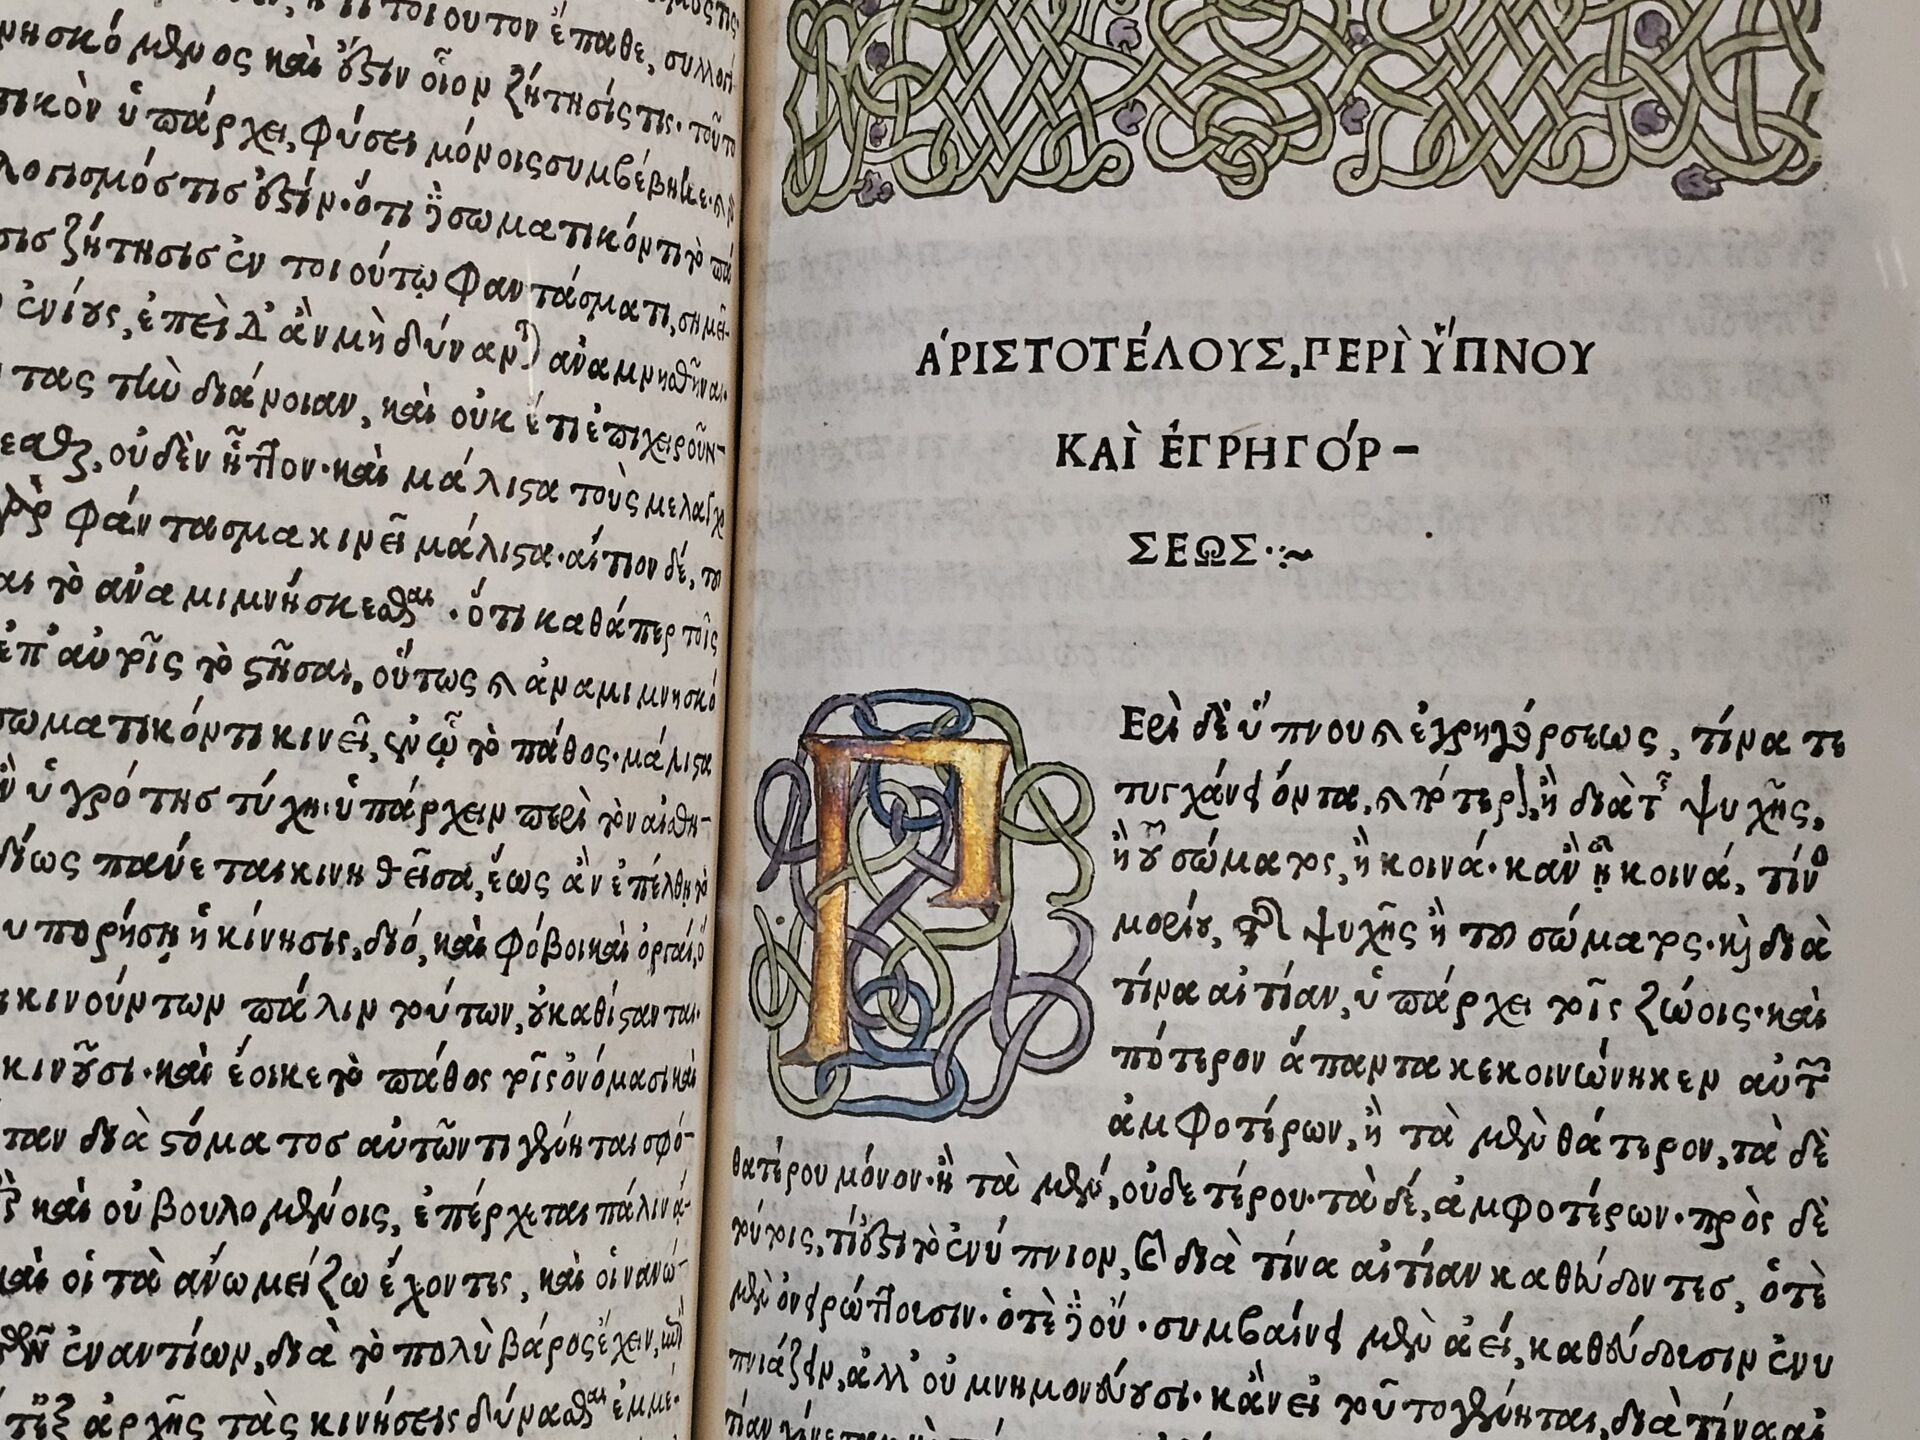 τοιουτον ἔπαθε, συλλογι
μνησκόμενος καὶ ἔστιν οἷον ζήτησίς τις. τοῦτο
τικὸν ὑπάρχει, φύσει μόνοις συμβέβηκε. καὶ
λογισμός τις ἐστίν. ὅτι δὲ σωματικόν τι τὸ πά
σις ζήτησις ἐν τοιούτῳ φαντάσματι, σημεῖ-
ἐνίους, ἐπεὶ δ' ἂν μὴ δύναντ) ἀναμνησθῆναι.
τας τὴν διάνοιαν, καὶ οὐκ ἔτι ἐπιχειροῦν-
εσθαι, οὐδὲν ἧττον. καὶ μάλιστα τοὺς μελαγχ
φάντασμα κινεῖ μάλιστα. αἴτιον δέ, του
τὸ ἀναμιμνήσκεσθαι. ὅτι καθάπερ τοῖς
ἐπ' αὐτοῖς τὸ στῆσαι, οὕτως καὶ ἀναμιμνησκό
σωματικόν τι κινεῖ, ἐν ᾧ τὸ πάθος. μάλιστα
ἂν ὑγρότης τύχῃ. ὑπάρχειν περὶ τὸν αἰσθη-
δίως παύεται κινηθεῖσα, ἕως ἂν ἐπέλθῃ τὸ
υπορήσῃ ἡ κίνησις, διό, καὶ φόβοι καὶ ὀργαί, ὅ
κινούντων πάλιν τούτων, οὐ καθίστανται.
κινοῦσι. καὶ ἔοικε τὸ πάθος τοῖς ὀνόμασι καὶ
ταν διὰ στόματος αὐτῶν τι γένηται σφό-
καὶ οὐ βουλομένοις, ἐπέρχεται πάλιν ᾄ-
καὶ οἱ τὰ ἄνω μείζω ἔχοντες, καὶ οἱ νανώ-
ἐναντίων, διὰ τὸ πολὺ βάρος ἔχειν,
ἐξ ἀρχῆς τὰς κινήσεις δύνασθαι ἐμμέ-
ἈΡΙΣΤΟΤΈΛΟΥΣ, ΠΕΡῚ ὝΠΝΟΥ
ΚΑῚ ἘΓΡΗΓΌΡ-
ΣΕΩΣ.
Περὶ δὲ ὕπνου καὶ ἐγρηγόρσεως, τίνα τε
τυγχάνει ὄντα, καὶ πότερον, ἢ διὰ τῆς ψυχῆς,
ἢ τοῦ σώματος, ἢ κοινά. κἂν ᾖ κοινά, τίνος
μορίου, τῆς ψυχῆς ἢ του σώματος. καὶ διὰ
τίνα αἰτίαν, ὑπάρχει τοῖς ζώοις. καὶ
πότερον ἅπαντα κεκοινώνηκεν αὐτῶν
ἀμφοτέρων, ἢ τὰ μὲν θάτερον, τὰ δὲ
θατέρου μόνον. ἢ τὰ μὲν, οὐδετέρου. τὰ δέ, ἀμφοτέρων. πρὸς δὲ
τούτοις, τί ἐστι τὸ ἐνύπνιον, καὶ διὰ τίνα αἰτίαν καθεύδοντες, ὁτὲ
μὲν ὀνειρώττουσιν. ὁτὲ δὲ οὔ. συμβαίνει μὲν ἀεί, καθεύδουσιν ἐνυ
πνιάζειν, ἀλλ' οὐ μνημονεύουσι. κἂν εἰ τοῦτο γένηται, διὰ τίνα αἰ